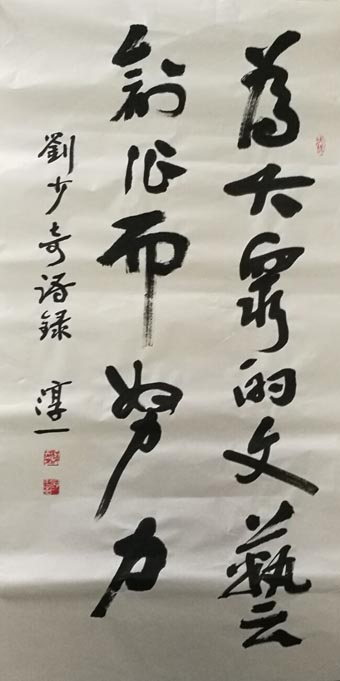 為大眾的文藝
創作而努力
劉少奇語錄 淳一